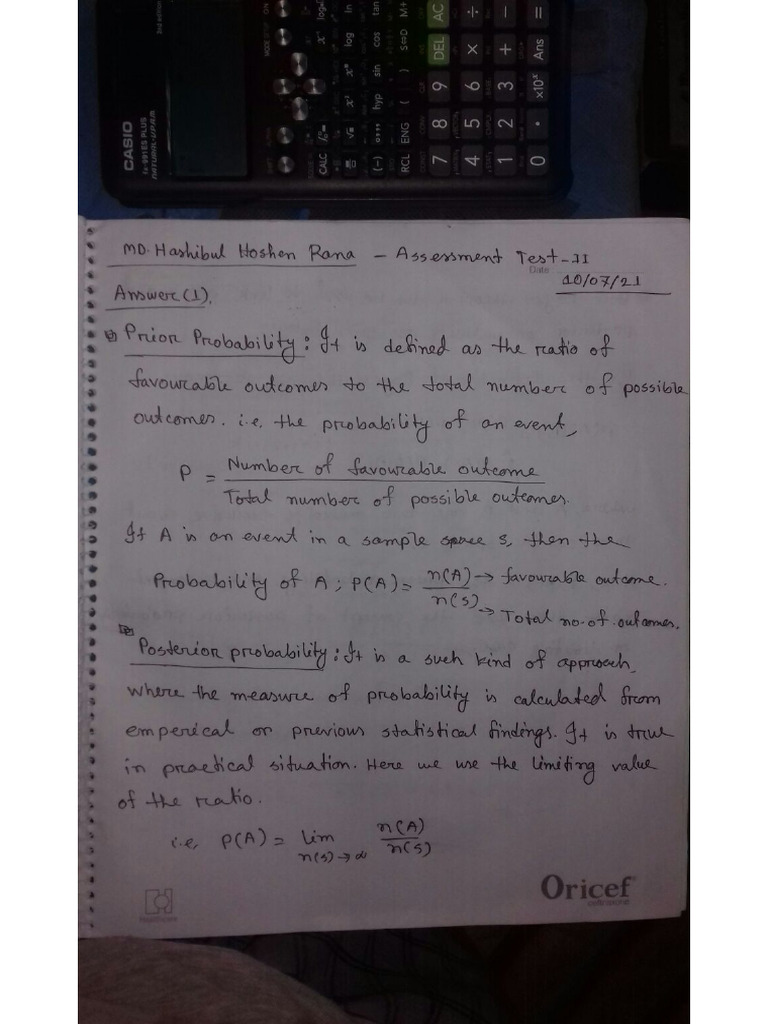 CASIO
fx-991ES PLUS
NATURAL-V.P.A.M.
2nd edition
CALC
(-) hyp sin cos tan
RCL ENG ( ) S⇔D M+
7 8 9 DEL AC
4 5 6 × ÷
1 2 3 + −
0 • ×10ˣ Ans =
MD. Hashibul Hoshen Rana – Assessment Test-II
Date 10/07/21
Answer (1).
Prior Probability: It is defined as the ratio of
favourable outcomes to the total number of possible
outcomes. i.e, the probability of an event,
P = Number of favourable outcome / Total number of possible outcomes.
If A is an event in a sample space S, then the
Probability of A; P(A) = n(A) → favourable outcome. / n(S) → Total no. of outcomes.
Posterior probability: It is a such kind of approach
where the measure of probability is calculated from
emperical or previous statistical findings. It is true
in practical situation. Here we use the limiting value
of the ratio.
i.e, P(A) = lim n(S)→∞ n(A)/n(S)
Oricef
Healthcare